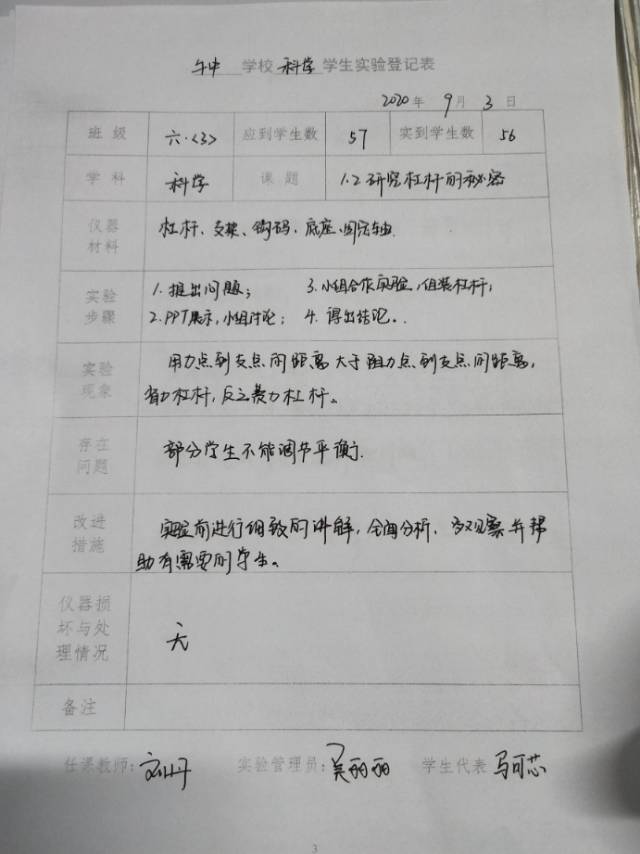 午中 学校 科学 学生实验登记表
2020 年 9 月 3 日
班 级 六.<3> 应到学生数 57 实到学生数 56
学 科 科学 课 题 1.2 研究杠杆的秘密
仪器
材料
杠杆、支架、钩码、底座、固定轴.
实验
步骤
1. 提出问题; 3. 小组合作实验,组装杠杆;
2. PPT展示,小组讨论; 4. 得出结论。.
实验
现象
用力点到支点间距离大于阻力点到支点间距离,
省力杠杆,反之费力杠杆。
存在
问题
部分学生不能调节平衡.
改进
措施
实验前进行细致的讲解,全面分析、多观察并帮
助有需要的学生。
仪器损
坏与处
理情况
无
备注
任课教师: 实验管理员: 吴丽丽 学生代表 马可芯
3